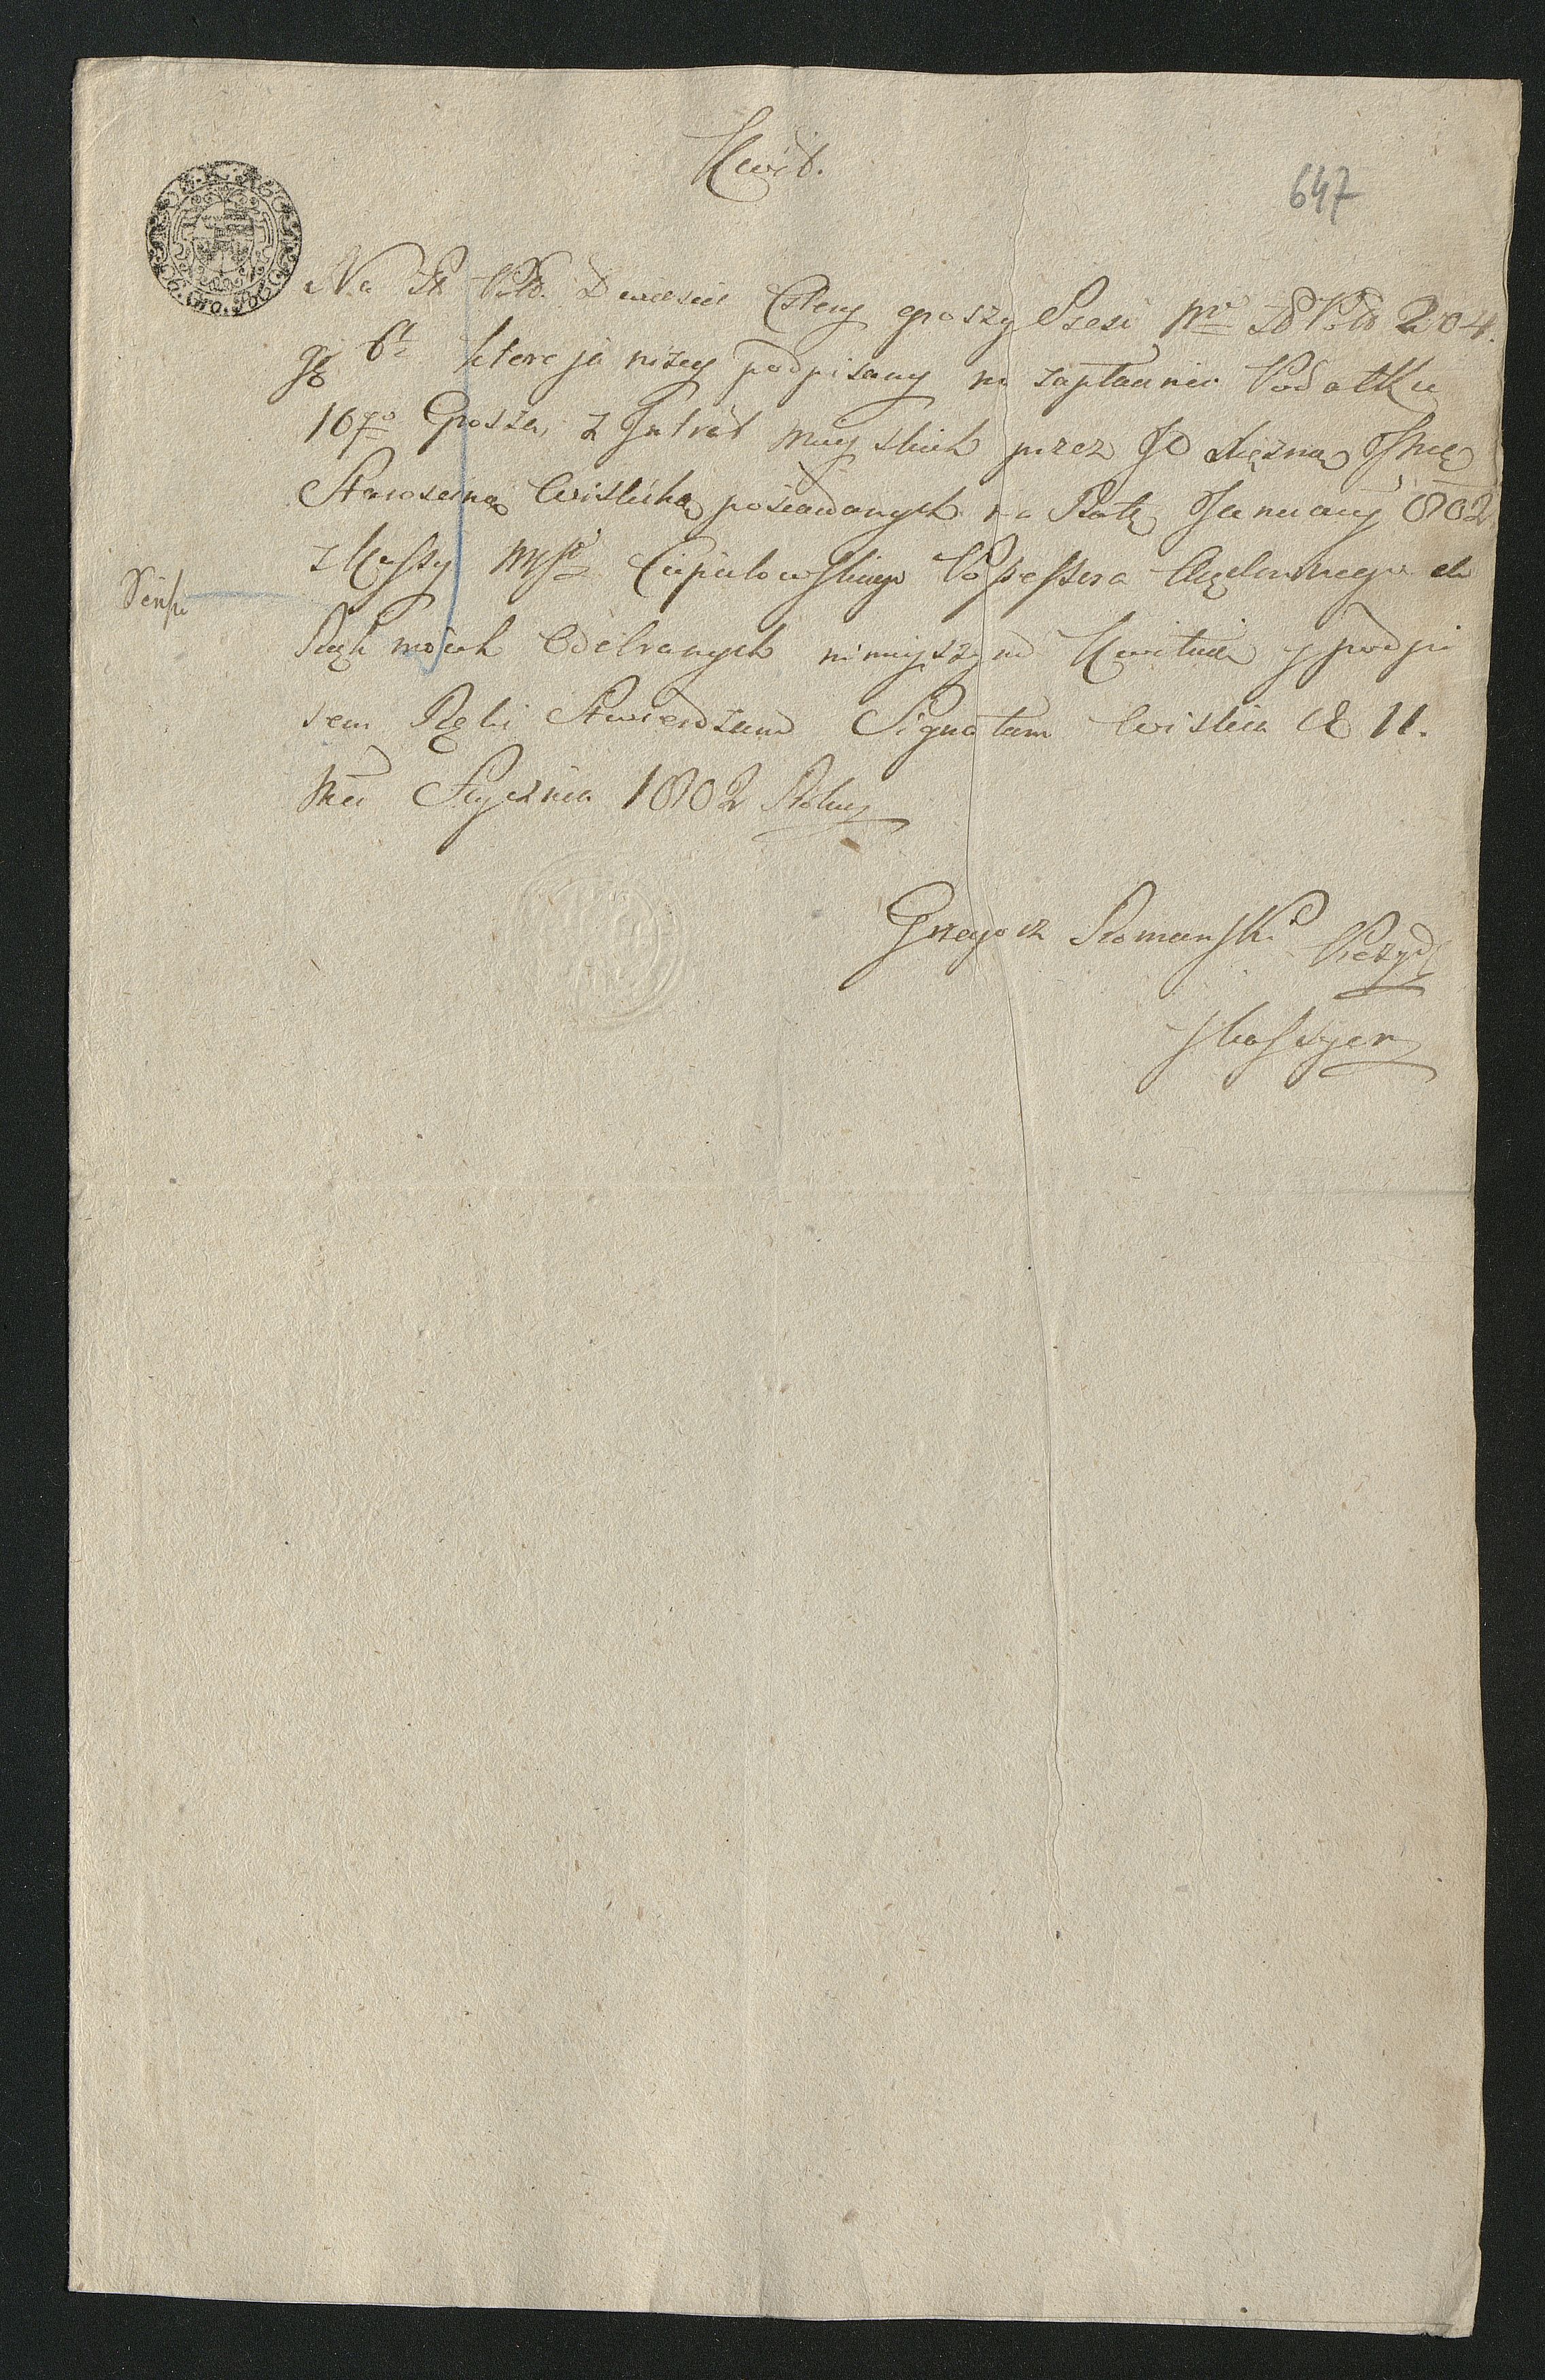 Kwit.
647
6. Gro. Pol
Na Zł Pold. Dwiescie Cztery groszy Szesc Nro Zł Pold 204.
gr 6 ktore ja nizey podpisany na zapłacenie Podatku
10go Grosza, z Intrat mieyskich przez JO Xiężnę Jmę
Starościnę Wislicką posiadanych na Ratę January 1802
z Kassy Ciepielowskiego Possessora do
Rąk moich Odebranych ninieyszym Kwituię y podpi
sem Ręki Stwierdzam Signatum Wislica d 11.
Stycznia 1802 Roku
Grzegorz Romanski Prezyd
Kassyer